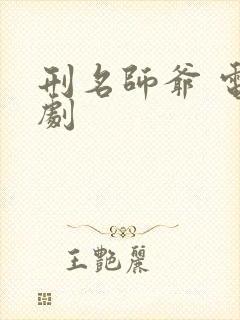 刑名師爺 電
劇
王艷麗